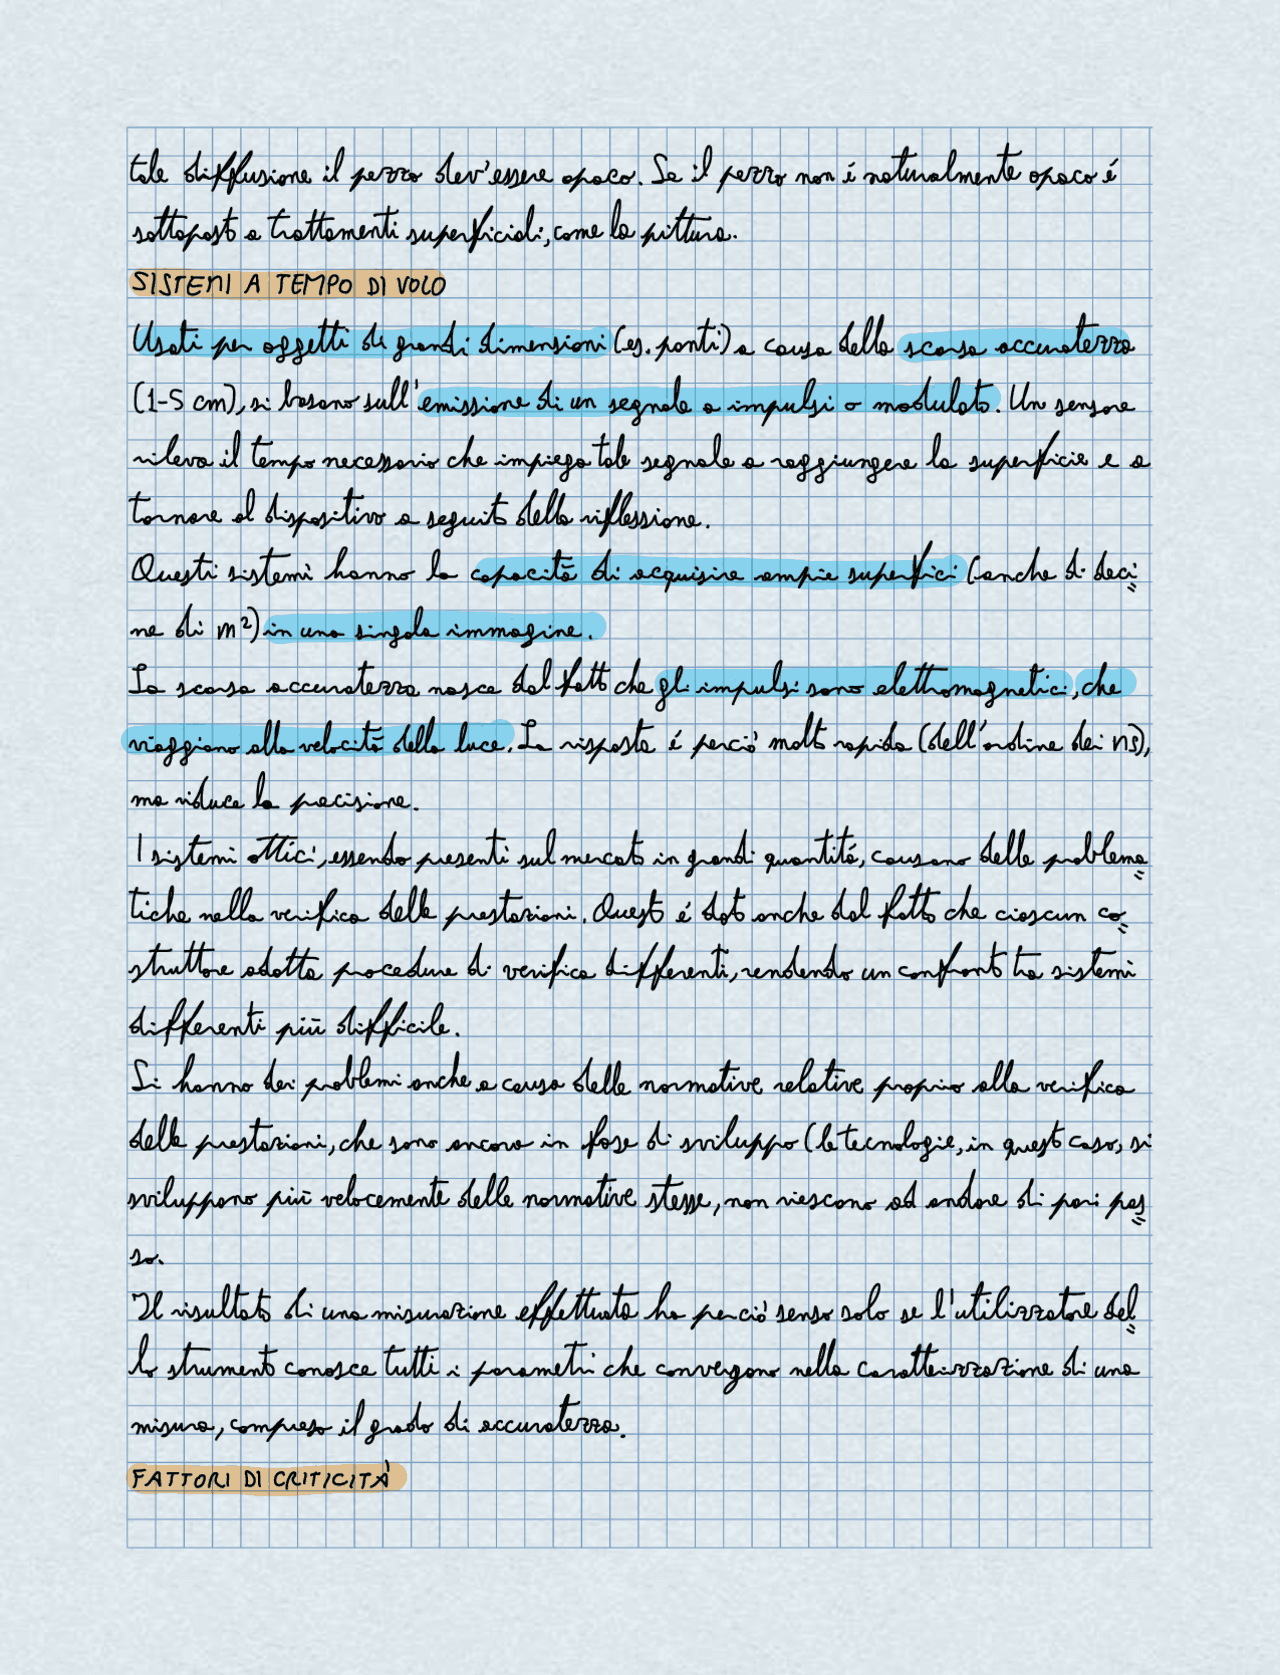 tale diffusione il pezzo dev'essere opaco. Se il pezzo non é naturalmente opaco é
sottoposto a trattamenti superficiali, come la pittura.
SISTEMI A TEMPO DI VOLO
Usati per oggetti di grandi dimensioni (es. ponti) a causa della scarsa accuratezza
(1-5 cm), si basano sull'emissione di un segnale a impulsi o modulato. Un sensore
rileva il tempo necessario che impiega tale segnale a raggiungere la superficie e a
tornare al dispositivo a seguito della riflessione.
Questi sistemi hanno la capacitá di acquisire ampie superfici (anche di deci
ne di m²) in una singola immagine.
La scarsa accuratezza nasce dal fatto che gli impulsi sono elettromagnetici, che
viaggiano alla velocitá della luce. La risposta é perció molto rapida (dell'ordine dei ns),
ma riduce la precisione.
I sistemi ottici, essendo presenti sul mercato in grandi quantitá, causano delle problema
tiche nella verifica delle prestazioni. Questo é dato anche dal fatto che ciascun co
struttore adotta procedure di verifica differenti, rendendo un confronto tra sistemi
differenti piú difficile.
Si hanno dei problemi anche a causa delle normative relative proprio alla verifica
delle prestazioni, che sono ancora in fase di sviluppo (le tecnologie, in questo caso, si
sviluppano piú velocemente delle normative stesse, non riescono ad andare di pari pas
so.
Il risultato di una misurazione effettuata ha perció senso solo se l'utilizzatore del
lo strumento conosce tutti i parametri che convergono nella caratterizzazione di una
misura, compreso il grado di accuratezza.
FATTORI DI CRITICITÀ